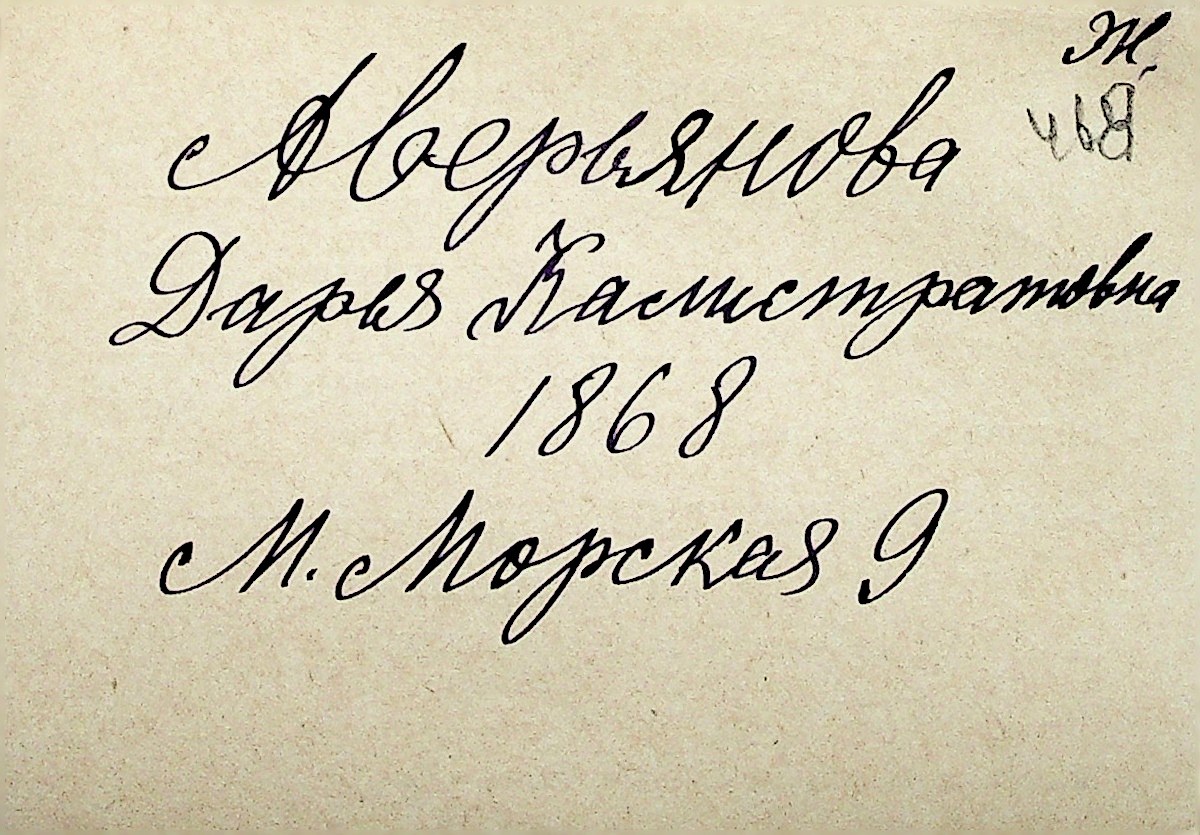 Ж.
Аверьянова
Дарья Калистратовна
1868
М. Морская 9